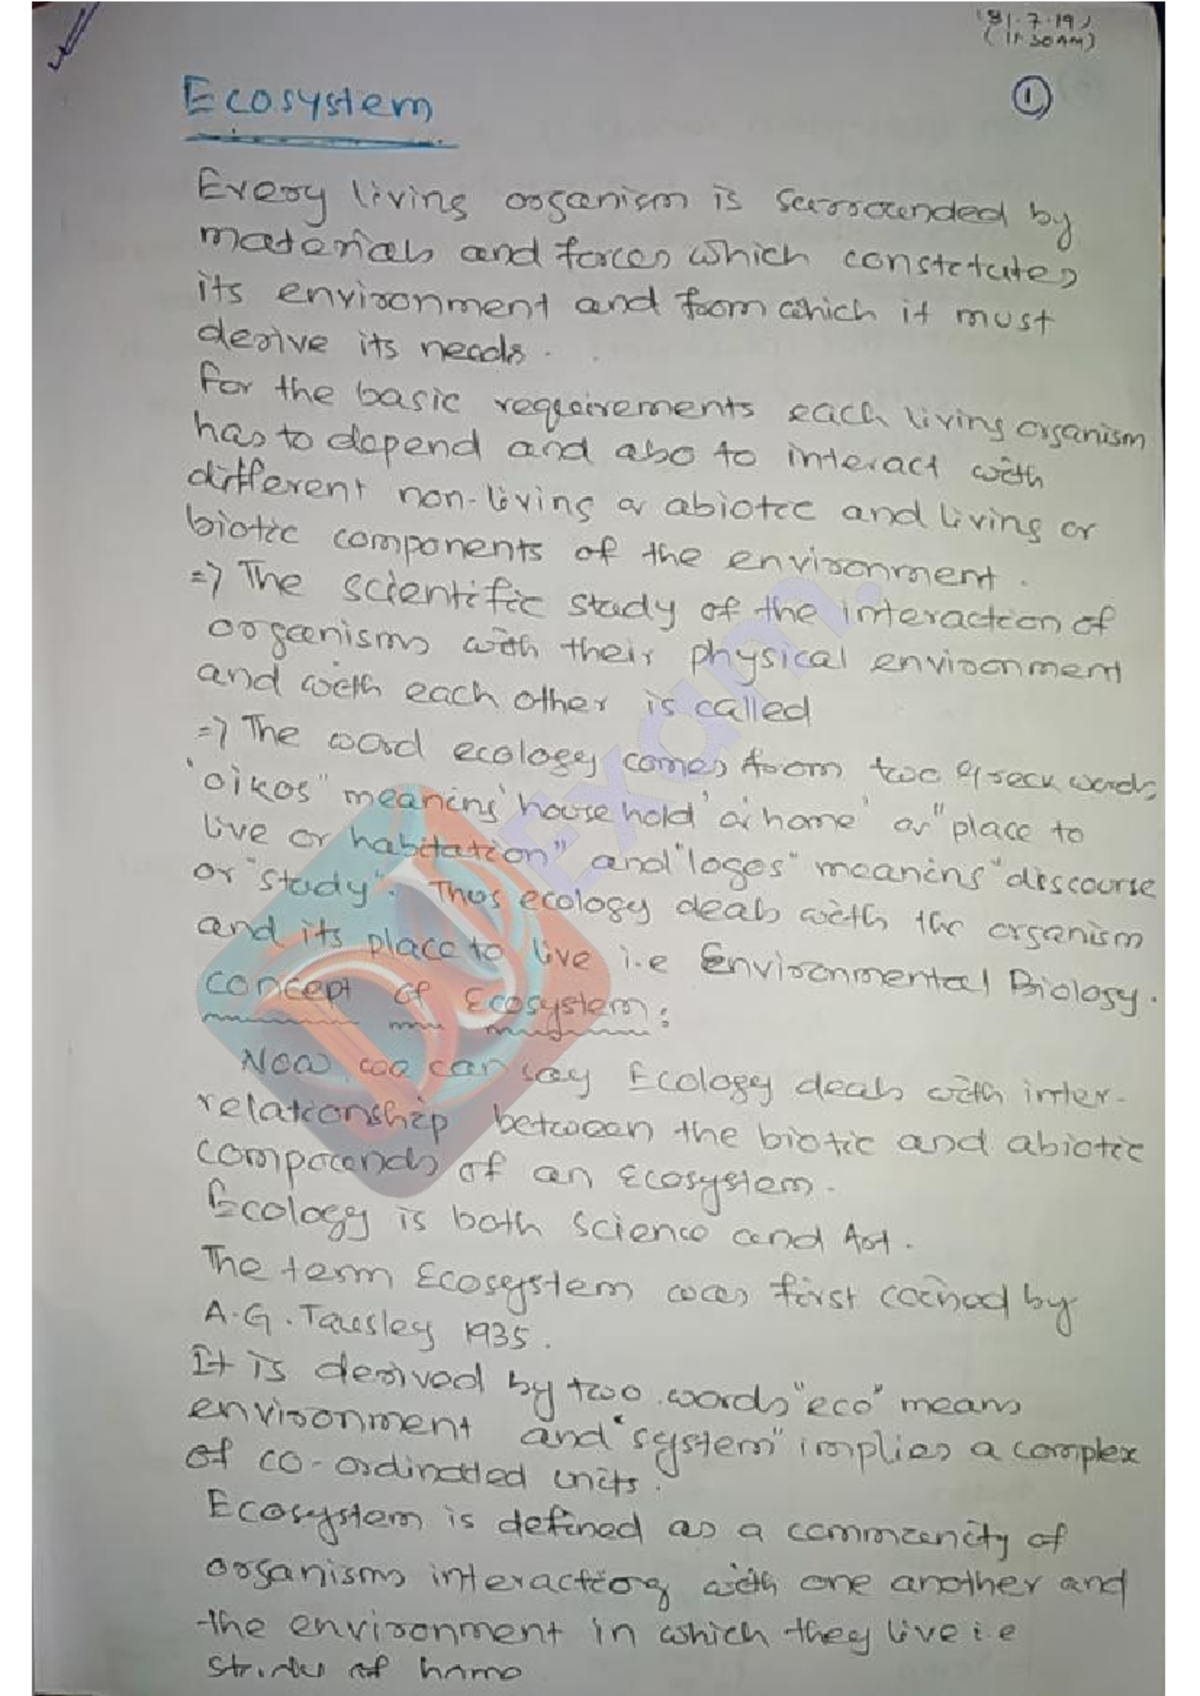 31.7.19
(11.30AM)
1
Ecosystem
Every living organism is surrounded by
materials and forces which constitutes
its environment and from which it must
derive its needs.
For the basic requirements each living organism
has to depend and also to interact with
different non-living or abiotic and living or
biotic components of the environment.
=> The scientific study of the interaction of
organisms with their physical environment
and with each other is called
=> The word ecology comes from two Greek words
'oikos" meaning 'house hold' or 'home' or "place to
live or habitation" and "logos" meaning "discourse
or "study". Thus ecology deals with the organism
and its place to live i.e Environmental Biology.
Concept of Ecosystem:
Now we can say Ecology deals with inter-
relationship between the biotic and abiotic
compounds of an Ecosystem.
Ecology is both science and Art.
The term Ecosystem was first coined by
A.G. Tausley 1935.
It is derived by two words "eco" means
environment and "system" implies a complex
of co-ordinated units.
Ecosystem is defined as a community of
organisms interacting with one another and
the environment in which they live i.e
of home
Exam.